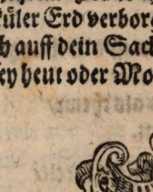 küler Erd verbor
h auff dein Sach
ey heut oder Mo